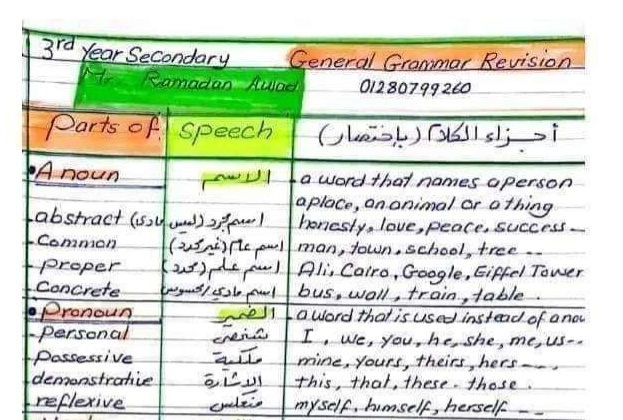 3rd Year Secondary General Grammar Revision
Mr. Ramadan Awad 01280799260
Parts of Speech أجزاء الكلام (بإختصار)
• A noun الاسم - a word that names a person
a place, an animal or a thing
- abstract اسم مجرد (ليس مادى) honesty, love, peace, success --
- Common اسم عام (غير محدد) man, town, school, tree --
- proper اسم علم (محدد) Ali, Cairo, Google, Eiffel Tower
- Concrete اسم مادى/محسوس bus, wall, train, table.
• Pronoun الضمير - a word that is used instead of a nou
- personal شخصى I, we, you, he, she, me, us --
- Possessive ملكية mine, yours, theirs, hers ---
- demonstrative الاشارة this, that, these - those.
- reflexive منعكس myself, himself, herself ---